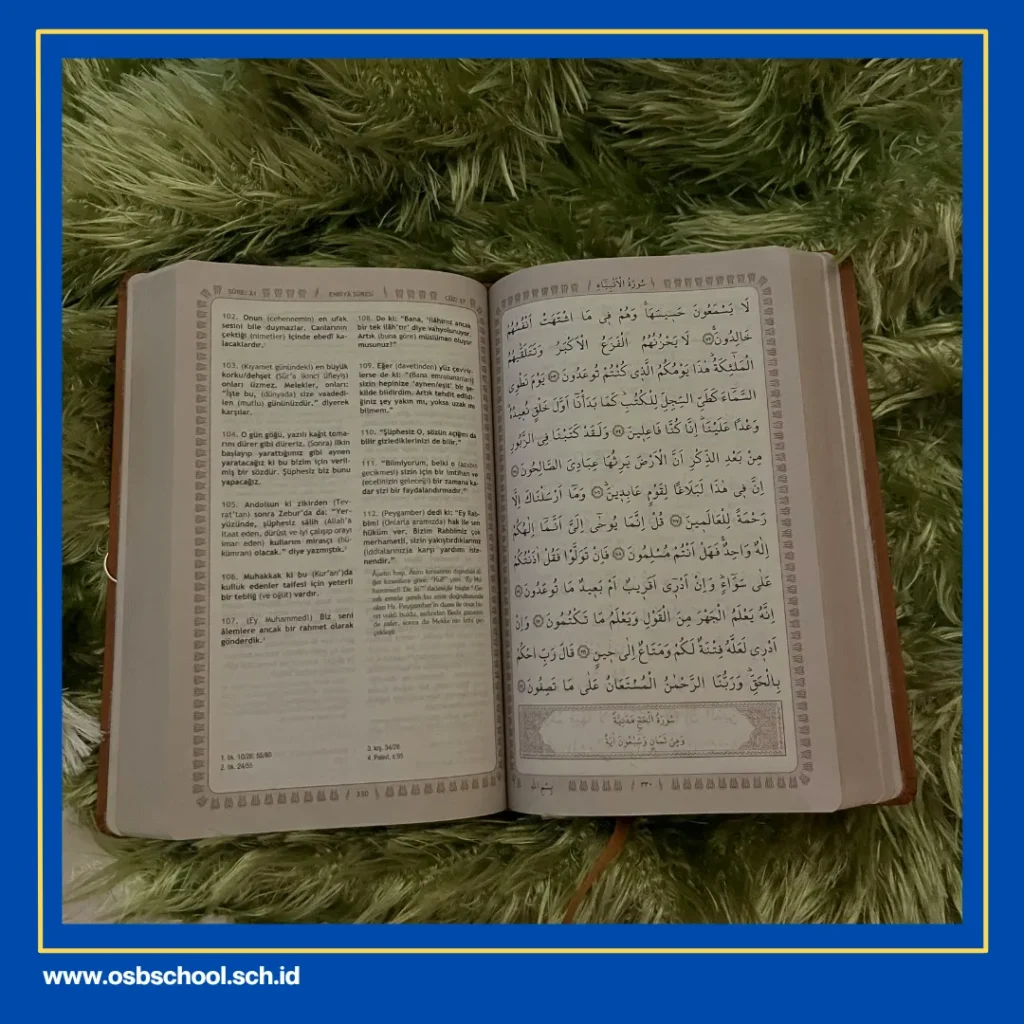 SÛRE: 21
ENBİYÂ SÛRESİ
CÜZ: 17
102. Onun (cehennemin) en ufak
sesini bile duymazlar. Canlarının
çektiği (nimetler) içinde ebedî ka-
lacaklardır.
103. (Kıyamet günündeki) en büyük
korku/dehşet (Sûr'a ikinci üfleyiş)
onları üzmez. Melekler, onları:
"İşte bu, (dünyada) size vaadedi-
len (mutlu) gününüzdür." diyerek
karşılar.
104. O gün göğü, yazılı kağıt toma-
rını dürer gibi düreriz. (Sonra) ilkin
başlayıp yarattığımız gibi aynen
yaratacağız ki bu bizim için veril-
miş bir sözdür. Şüphesiz biz bunu
yapacağız.
105. Andolsun ki zikirden (Tev-
rat'tan) sonra Zebur'da da: "Yer-
yüzünde, şüphesiz sâlih (Allah'a
itaat eden, dürüst ve iyi çalışıp orayı
imar eden) kullarım mirasçı (hü-
kümran) olacak." diye yazmıştık.¹
106. Muhakkak ki bu (Kur'an)'da
kulluk edenler taifesi için yeterli
bir tebliğ (ve öğüt) vardır.
107. (Ey Muhammed!) Biz seni
âlemlere ancak bir rahmet olarak
gönderdik.²
1. bk. 10/28; 50/80
2. bk. 24/55
108. De ki: "Bana, 'ilâhınız ancak
bir tek ilâh'tır' diye vahyolunuyor.
Artık (buna göre) müslüman oluyor
musunuz?"
109. Eğer (davetinden) yüz çevirir-
lerse de ki: "(Bana emrolunanları)
sizin hepinize 'aynen/eşit' bir şe-
kilde bildirdim. Artık tehdit edildi-
ğiniz şey yakın mı, yoksa uzak mı
bilmem."
110. "Şüphesiz O, sözün açığını da
bilir gizlediklerinizi de bilir."
111. "Bilmiyorum, belki o (azabın
gecikmesi) sizin için bir imtihan ve
(ecelinizin geleceği) bir zamana ka-
dar sizi bir faydalandırmadır."
112. (Peygamber) dedi ki: "Ey Rab-
bim! (Onlarla aramızda) hak ile sen
hüküm ver. Bizim Rabbimiz çok
merhametli, sizin yakıştırdıklarınız
(iddialarınız)a karşı yardımı iste-
nendir."
3. krş. 34/28
330
سُورَةُ الْاَنْبِيَاءِ
لَا يَسْمَعُونَ حَسٖيسَهَاۚ وَهُمْ فٖي مَا اشْتَهَتْ اَنْفُسُهُمْ
خَالِدُونَۚ ﴿١٠٢﴾ لَا يَحْزُنُهُمُ الْفَزَعُ الْاَكْبَرُ وَتَتَلَقّٰيهُمُ
الْمَلٰٓئِكَةُۜ هٰذَا يَوْمُكُمُ الَّذٖي كُنْتُمْ تُوعَدُونَ ﴿١٠٣﴾ يَوْمَ نَطْوِي
السَّمَٓاءَ كَطَيِّ السِّجِلِّ لِلْكُتُبِۜ كَمَا بَدَأْنَٓا اَوَّلَ خَلْقٍ نُعٖيدُهُۜ
وَعْدًا عَلَيْنَاۜ اِنَّا كُنَّا فَاعِلٖينَ ﴿١٠٤﴾ وَلَقَدْ كَتَبْنَا فِي الزَّبُورِ
مِنْ بَعْدِ الذِّكْرِ اَنَّ الْاَرْضَ يَرِثُهَا عِبَادِيَ الصَّالِحُونَ ﴿١٠٥﴾
اِنَّ فٖي هٰذَا لَبَلَاغًا لِقَوْمٍ عَابِدٖينَۜ ﴿١٠٦﴾ وَمَٓا اَرْسَلْنَاكَ اِلَّا
رَحْمَةً لِلْعَالَمٖينَ ﴿١٠٧﴾ قُلْ اِنَّمَا يُوحٰٓى اِلَيَّ اَنَّمَٓا اِلٰهُكُمْ
اِلٰهٌ وَاحِدٌۚ فَهَلْ اَنْتُمْ مُسْلِمُونَ ﴿١٠٨﴾ فَاِنْ تَوَلَّوْا فَقُلْ اٰذَنْتُكُمْ
عَلٰى سَوَٓاءٍۜ وَاِنْ اَدْرٖٓي اَقَرٖيبٌ اَمْ بَعٖيدٌ مَا تُوعَدُونَ ﴿١٠٩﴾
اِنَّهُ يَعْلَمُ الْجَهْرَ مِنَ الْقَوْلِ وَيَعْلَمُ مَا تَكْتُمُونَ ﴿١١٠﴾ وَاِنْ
اَدْرٖي لَعَلَّهُ فِتْنَةٌ لَكُمْ وَمَتَاعٌ اِلٰى حٖينٍ ﴿١١١﴾ قَالَ رَبِّ احْكُمْ
بِالْحَقِّۜ وَرَبُّنَا الرَّحْمٰنُ الْمُسْتَعَانُ عَلٰى مَا تَصِفُونَ ﴿١١٢﴾
سُورَةُ الْحَجِّ مَدَنِيَّةٌ
وَهِيَ ثَمَانٍ وَسَبْعُونَ اٰيَةً
٣٣٠
www.osbschool.sch.id